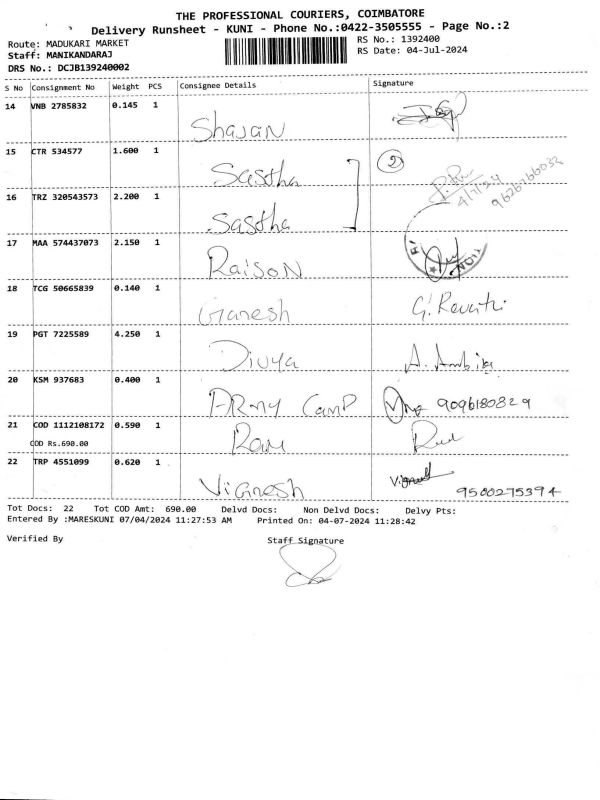 THE PROFESSIONAL COURIERS, COIMBATORE
Delivery Runsheet - KUNI - Phone No.:0422-3505555 - Page No.:2
Route: MADUKARI MARKET
RS No.: 1392400
Staff: MANIKANDARAJ
RS Date: 04-Jul-2024
DRS No.: DCJB139240002
S No Consignment No Weight PCS Consignee Details Signature
14 VNB 2785832 0.145 1
Shajan
15 CTR 534577 1.600 1
2
Sastha
4/7/24
9626766032
16 TRZ 320543573 2.200 1
Sastha
17 MAA 574437073 2.150 1
Raison
18 TCG 50665839 0.140 1
Ganesh G. Revathi
19 PGT 7225589 4.250 1
Divya A. Ambika
20 KSM 937683 0.400 1
ARMY CamP 9096180829
21 COD 1112108172 0.590 1
COD Rs.690.00
Ram
22 TRP 4551099 0.620 1
Vignesh Vignesh
9500275394
Tot Docs: 22 Tot COD Amt: 690.00 Delvd Docs: Non Delvd Docs: Delvy Pts:
Entered By :MARESKUNI 07/04/2024 11:27:53 AM Printed On: 04-07-2024 11:28:42
Verified By Staff Signature